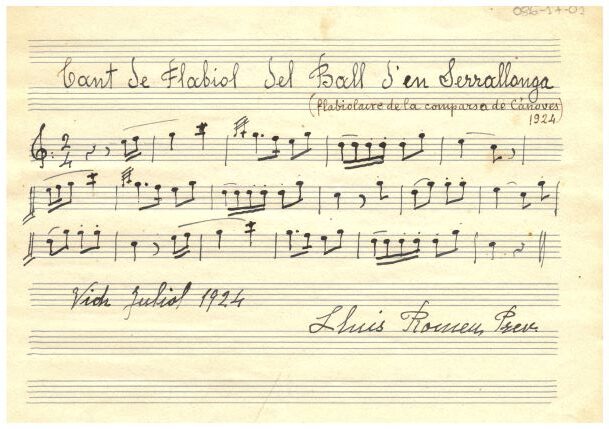 086-17-02
Cant de Flabiol del Ball d'en Serrallonga
(flabiolaire de la comparsa de Cànoves)
1924
2
4
Vich Juliol 1924
Lluis Romeu Prev.